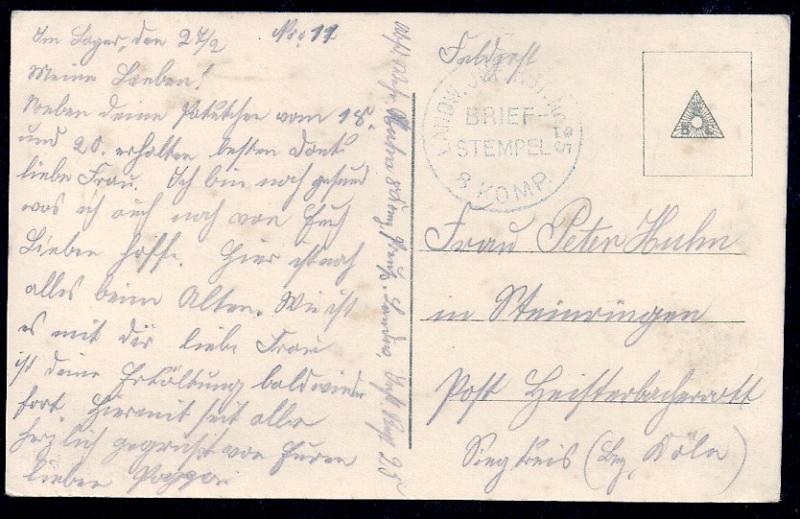 Im Lager, den 27/2 No. 11
Meine Lieben!
Soeben deine Paketchen vom 18.
und 20. erhalten besten Dank
liebe Frau. Ich bin noch gesund
was ich auch noch von Euch
Lieben hoffe. Hier ist noch
alles beim Alten. Wie ist
es mit dir liebe Frau
ist deine Erkältung bald wieder
fort. Hiermit seit alle
herzlich gegrüßt von Euren
lieben Pappa.
Landw. Inft. Reg 25
Feldpost
LANDW. INF. RGT. No 25
BRIEF-
STEMPEL
8 KOMP.
Frau Peter Huhn
in Steinringen
Post Heisterbacherrott
Siegkreis (Bez. Köln)